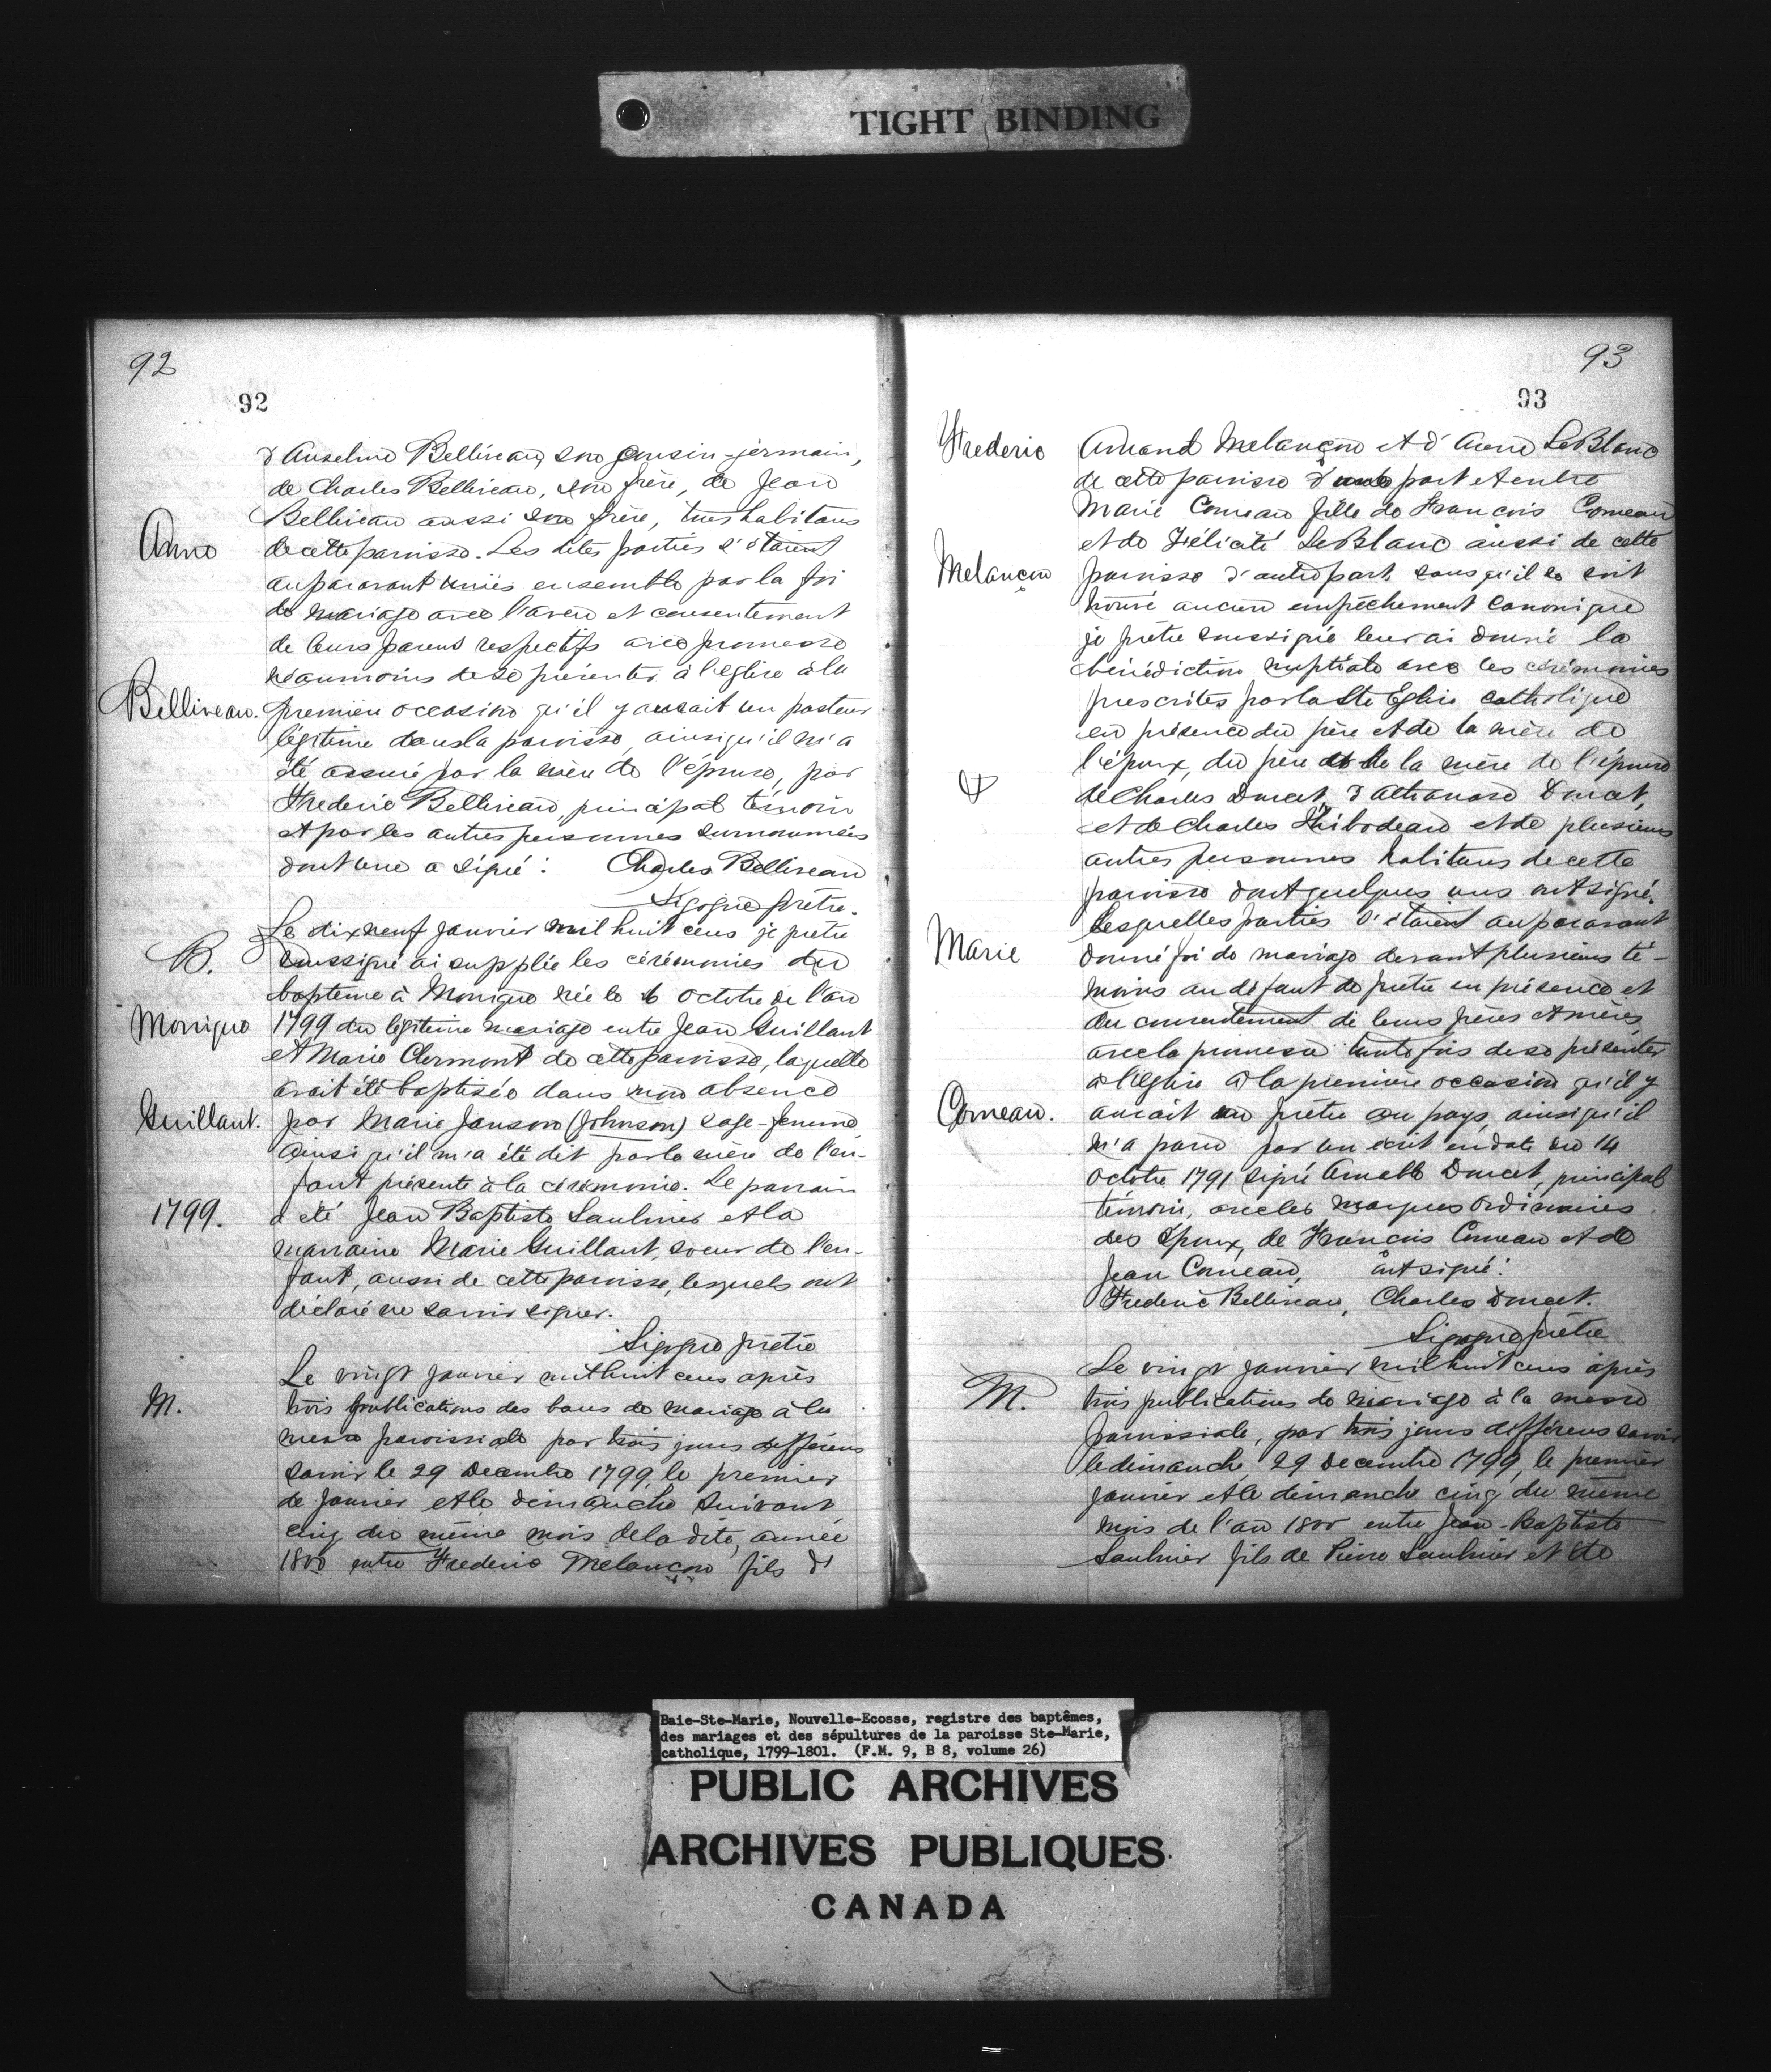 TIGHT BINDING
92
92
d'Anselme Belliveau, son cousin-germain,
de Charles Belliveau, son frère, de Jean
Belliveau aussi son frère, tous habitans
Anne
de cette paroisse. Les dites parties s'étaient
auparavant unies ensemble par la foi
de mariage avec l'aveu et consentement
de leurs parens respectifs avec promesse
néanmoins de se présenter à l'église à la
Belliveau.
première occasion qu'il y aurait un pasteur
légitime dans la paroisse, ainsi qu'il m'a
été assuré par la mère de l'épouse, par
Frederic Belliveau, principal témoin
et par les autres personnes surnommées
dont une a signé : Charles Belliveau
Sigogne prêtre.
Le dix neuf janvier mil huit cens je prêtre
B.
soussigné ai supplée les cérémonies du
baptême à Monique née le 6 octobre de l'an
Monique
1799 du légitime mariage entre Jean Guillant
et Marie Clermont de cette paroisse, laquelle
avait été baptisée dans mon absence
Guillant.
par Marie Janson (Johnson) sage-femme
Ainsi qu'il m'a été dit par la mère de l'en-
fant présente à la cérémonie. Le parrain
1799.
a été Jean Baptiste Saulnier et la
marraine Marie Guillant, soeur de l'en-
fant, aussi de cette paroisse, lesquels ont
déclaré ne savoir signer.
Sigogne prêtre
Le vingt janvier mil huit cens après
M.
trois publications des bans de mariage à la
messe paroissiale par trois jours différens
savoir le 29 Decembre 1799, le premier
de janvier et le dimanche suivant
cinq du même mois de la dite année
1800 entre Frederic Melançon fils d'
93
93
Frederic
Amand Melançon et d'Anne LeBlanc
de cette paroisse d'une part et entre
Marie Comeau fille de François Comeau
et de Félicité LeBlanc aussi de cette
Melançon
paroisse d'autre part, sans qu'il se soit
trouvé aucun empêchement canonique
je prêtre soussigné leur ai donné la
bénédiction nuptiale avec les cérémonies
prescrites par la Ste Eglise catholique
en présence du père et de la mère de
l'époux, du père et de la mère de l'épouse
&
de Charles Doucet, d'Athanase Doucet,
et de Charles Thibodeau et de plusieurs
autres personnes habitans de cette
paroisse dont quelques uns ont signé.
Lesquelles parties s'étaient auparavant
Marie
donné foi de mariage devant plusieurs té-
moins au défaut de prêtre en présence et
du consentement de leurs pères et mères,
avec la promesse toute fois de se présenter
à l'église à la première occasion qu'il y
Comeau.
aurait un prêtre au pays, ainsi qu'il
m'a paru par un écrit en date du 14
Octobre 1791 signé Amable Doucet, principal
témoin, avec les marques ordinaires
des Epoux, de François Comeau et de
Jean Comeau, ont signé :
Frederic Belliveau, Charles Doucet.
Sigogne prêtre
Le vingt janvier mil huit cens après
M.
trois publications de mariage à la messe
paroissiale, par trois jours différens savoir
le dimanche 29 Decembre 1799, le premier
janvier et le dimanche cinq du même
mois de l'an 1800 entre Jean-Baptiste
Saulnier fils de Pierre Saulnier et de
Baie-Ste-Marie, Nouvelle-Ecosse, registre des baptêmes,
des mariages et des sépultures de la paroisse Ste-Marie,
catholique, 1799-1801. (F.M. 9, B 8, volume 26)
PUBLIC ARCHIVES
ARCHIVES PUBLIQUES
CANADA